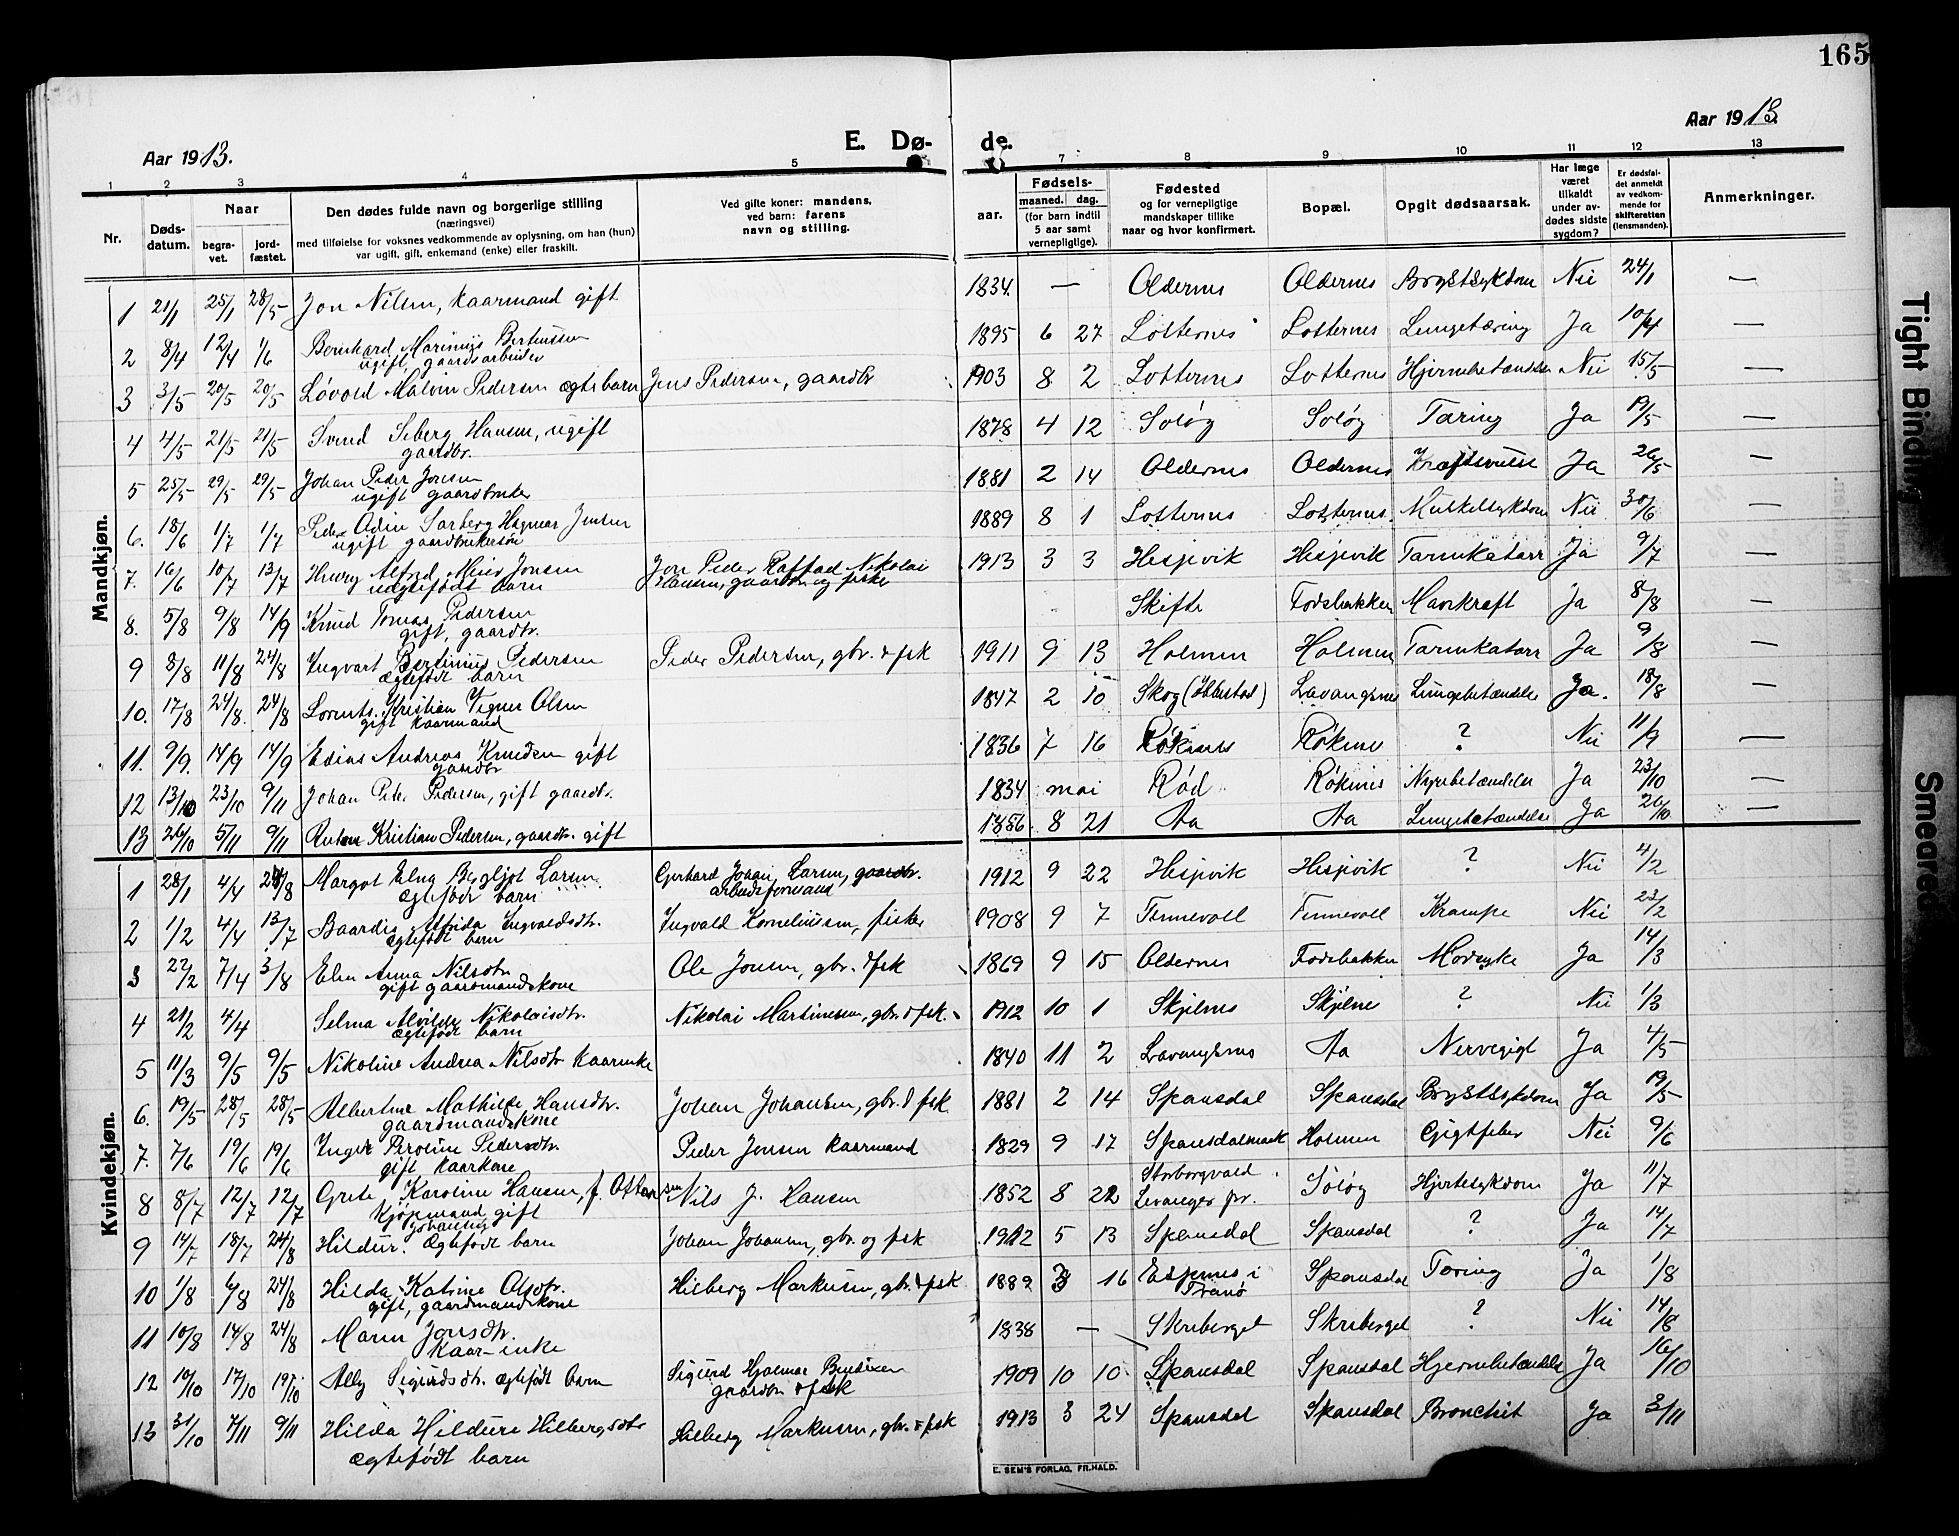 165
Aar 1913.
E. Dø-
de.
Aar 1913.
1 2 3 4 5 7 8 9 10 11 12 13
Nr.
Døds-
datum.
Naar
begra-
vet.
jord-
fæstet.
Den dødes fulde navn og borgerlige stilling
(næringsvei)
med tilføielse for voksnes vedkommende av oplysning, om han (hun)
var ugift, gift, enkemand (enke) eller fraskilt.
Ved gifte koner: mandens,
ved barn: farens
navn og stilling.
Fødsels-
aar.
maaned. dag.
(for barn indtil
5 aar samt
vernepligtige).
Fødested
og for vernepligtige
mandskaper tillike
naar og hvor konfirmert.
Bopæl.
Opgit dødsaarsak.
Har læge
været
tilkaldt
under av-
dødes sidste
sygdom?
Er dødsfal-
det anmeldt
av vedkom-
mende for
skifteretten
(lensmanden).
Anmerkninger.
Mandkjøn.
1 21/1 25/1 28/5 Jon Nilsen, kaarmand gift 1834. — Oldernes Oldernes Brystsykdom Nei 24/1 —
2 8/4 12/4 1/6 Bernhard Marinius Bertiussen 1895 6 27 Lotternes Lotternes Lungetæring Ja 10/4 —
ugift, gaardsarbeider
3 3/5 20/5 20/5 Løvold Malvin Pedersen ægte barn Jens Pedersen, gaardbr 1903 8 2 Lotternes Lotternes Hjernebetændelse Nei 15/5 —
4 4/5 21/5 21/5 Svend Seberg Hansen, ugift 1878 4 12 Soløy Soløy Tæring Ja 19/5 —
gaardbr.
5 25/5 29/5 29/5 Johan Peder Jonsen 1881 2 14 Oldernes Oldernes Kræftsvulst Ja 26/5 —
ugift gaardbruker
6. 18/6 1/7 1/7 Peder Odin Sørberg Hagmar Jensen 1889 8 1 Lotternes Lotternes. Muskelsykdom Nei 30/6 —
ugift gaardbrukersøn
7. 16/6 10/7 13/7 Henry Alfred Meier Jonsen Jon Peder Raffad Nikolai 1913 3 3 Hesjevik Hesjevik Tarmkatarr Ja 9/7 —
uægtefødt barn Hansen, gaardbr og fisker
8. 5/8 9/8 14/9 Knud Tomas Pedersen Skifte Fodsbakken Mavekræft Ja 8/8 —
gift, gaardbr.
9 8/8 11/8 24/8 Ingvart Bertinius Pedersen Peder Pedersen, gbr. & fsk 1911 9 13 Holmen Holmen Tarmkatarr Ja 9/8 —
ægtefødt barn
10. 17/8 24/8. 24/8 Lorents Kristian Vegner Olsen 1847 2 10 Skog (Ibbestad) Lavangsnes Lungebetændelse Ja. 18/8 —
gift kaarmand
11. 9/9. 14/9 14/9 Edias Andreas Knudsen gift 1836 7 16 Røknes Røknes ? Nei 11/9 —
gaardbr
12 13/10 23/10 9/11 Johan Peter Pedersen, gift gaardbr. 1834 mai Rød Røknes Nyrebetændelse Ja 23/10 —
13 26/10 5/11 9/11 Anton Kristian Pedersen, gaardbr. gift 1856 8 21 Aa Aa Lungebetændelse Ja 26/10 —
Kvindekjøn.
1 28/1 4/4 24/8 Margot Elna Bergljot Larsen Gerhard Johan Larsen, gaardbr. 1912 9 22 Hesjevik Hesjevik ? Nei 4/2
ægtefødt barn arbeidsformand
2 1/2 4/4 13/7 Baardis Alfrida Ingvaldsdtr. Ingvald Korneliussen, fisker 1908 9 7 Tennevoll Tennevoll Krampe Nei 23/2
ægtefødt barn
3 22/2 7/4 3/8 Elen Anna Nilsdtr Ole Jonsen, gbr. & fsk 1869 9 15 Oldernes Fodsbakken Morsyke Ja 14/3
gift gaardmandskone
4 21/2 4/4 Selma Alvilde Nikolaisdtr. Nikolai Martinesen, gbr. & fsk. 1912 10 1 Skjelnes Skjelnes ? Nei 1/3
ægtefødt barn
5 11/3 9/5 9/5 Nikoline Andrea Nilsdtr kaarenke 1840 11 2 Lavangsnes Aa Nervegigt Ja 4/5
6. 19/5 28/5 28/5 Albertine Mathilde Hansdtr. Johan Johansen, gbr. & fsk 1881 2 14 Spansdal Spansdal Brystsykdom Ja 19/5
gaardmandskone
7. 7/6 19/6 19/6 Inger Peroline Pedersdtr. Peder Jonsen kaarmand 1829 9 17 Spansdalmark Holmen Gigtfeber Nei 9/6
gift kaarkone
8 8/7 12/7 12/7 Grete Karoline Hansen, f. Oftensen Nils J. Hansen 1852 8 22 Storborgvald Levanger pr. Soløy Hjertesykdom Ja 11/7
Kjøpmand gift
9 14/7 18/7 24/8 Hildur. Johansdtr ægtefødt barn Johan Johansen, gbr. og fsk 1912 5 13 Spansdal Spansdal ? Ja 14/7
10 1/8 6/8 24/8 Hilda Katrine Olsdtr. Hilberg Markusen, gbr. & fsk 1889 3 16 Espenes i Tranø Spansdal Tæring Ja 1/8
gift, gaardmandskone
11 10/8 14/8 24/8 Maren Jonsdtr. 1838 — Skreberget Skreberget ? Nei 14/8
Kaar-enke
12 10/10 17/10 19/10 Ally Sigurdsdtr. ægtefødt barn Sigurd Hjalmar Bendixen 1909 10 10 Spansdal Spansdal Hjernebetændelse Ja 16/10
gaardbr & fsk
13 31/10 7/11 9/11 Hilda Hildure Hilbergsdtr Hilberg Markusen, gbr. & fsk 1913 3 24 Spansdal Spansdal Bronchit Ja 3/11
ægtefødt barn
E. SEM'S FORLAG, FR.HALD.
Tight Binding
Smeared